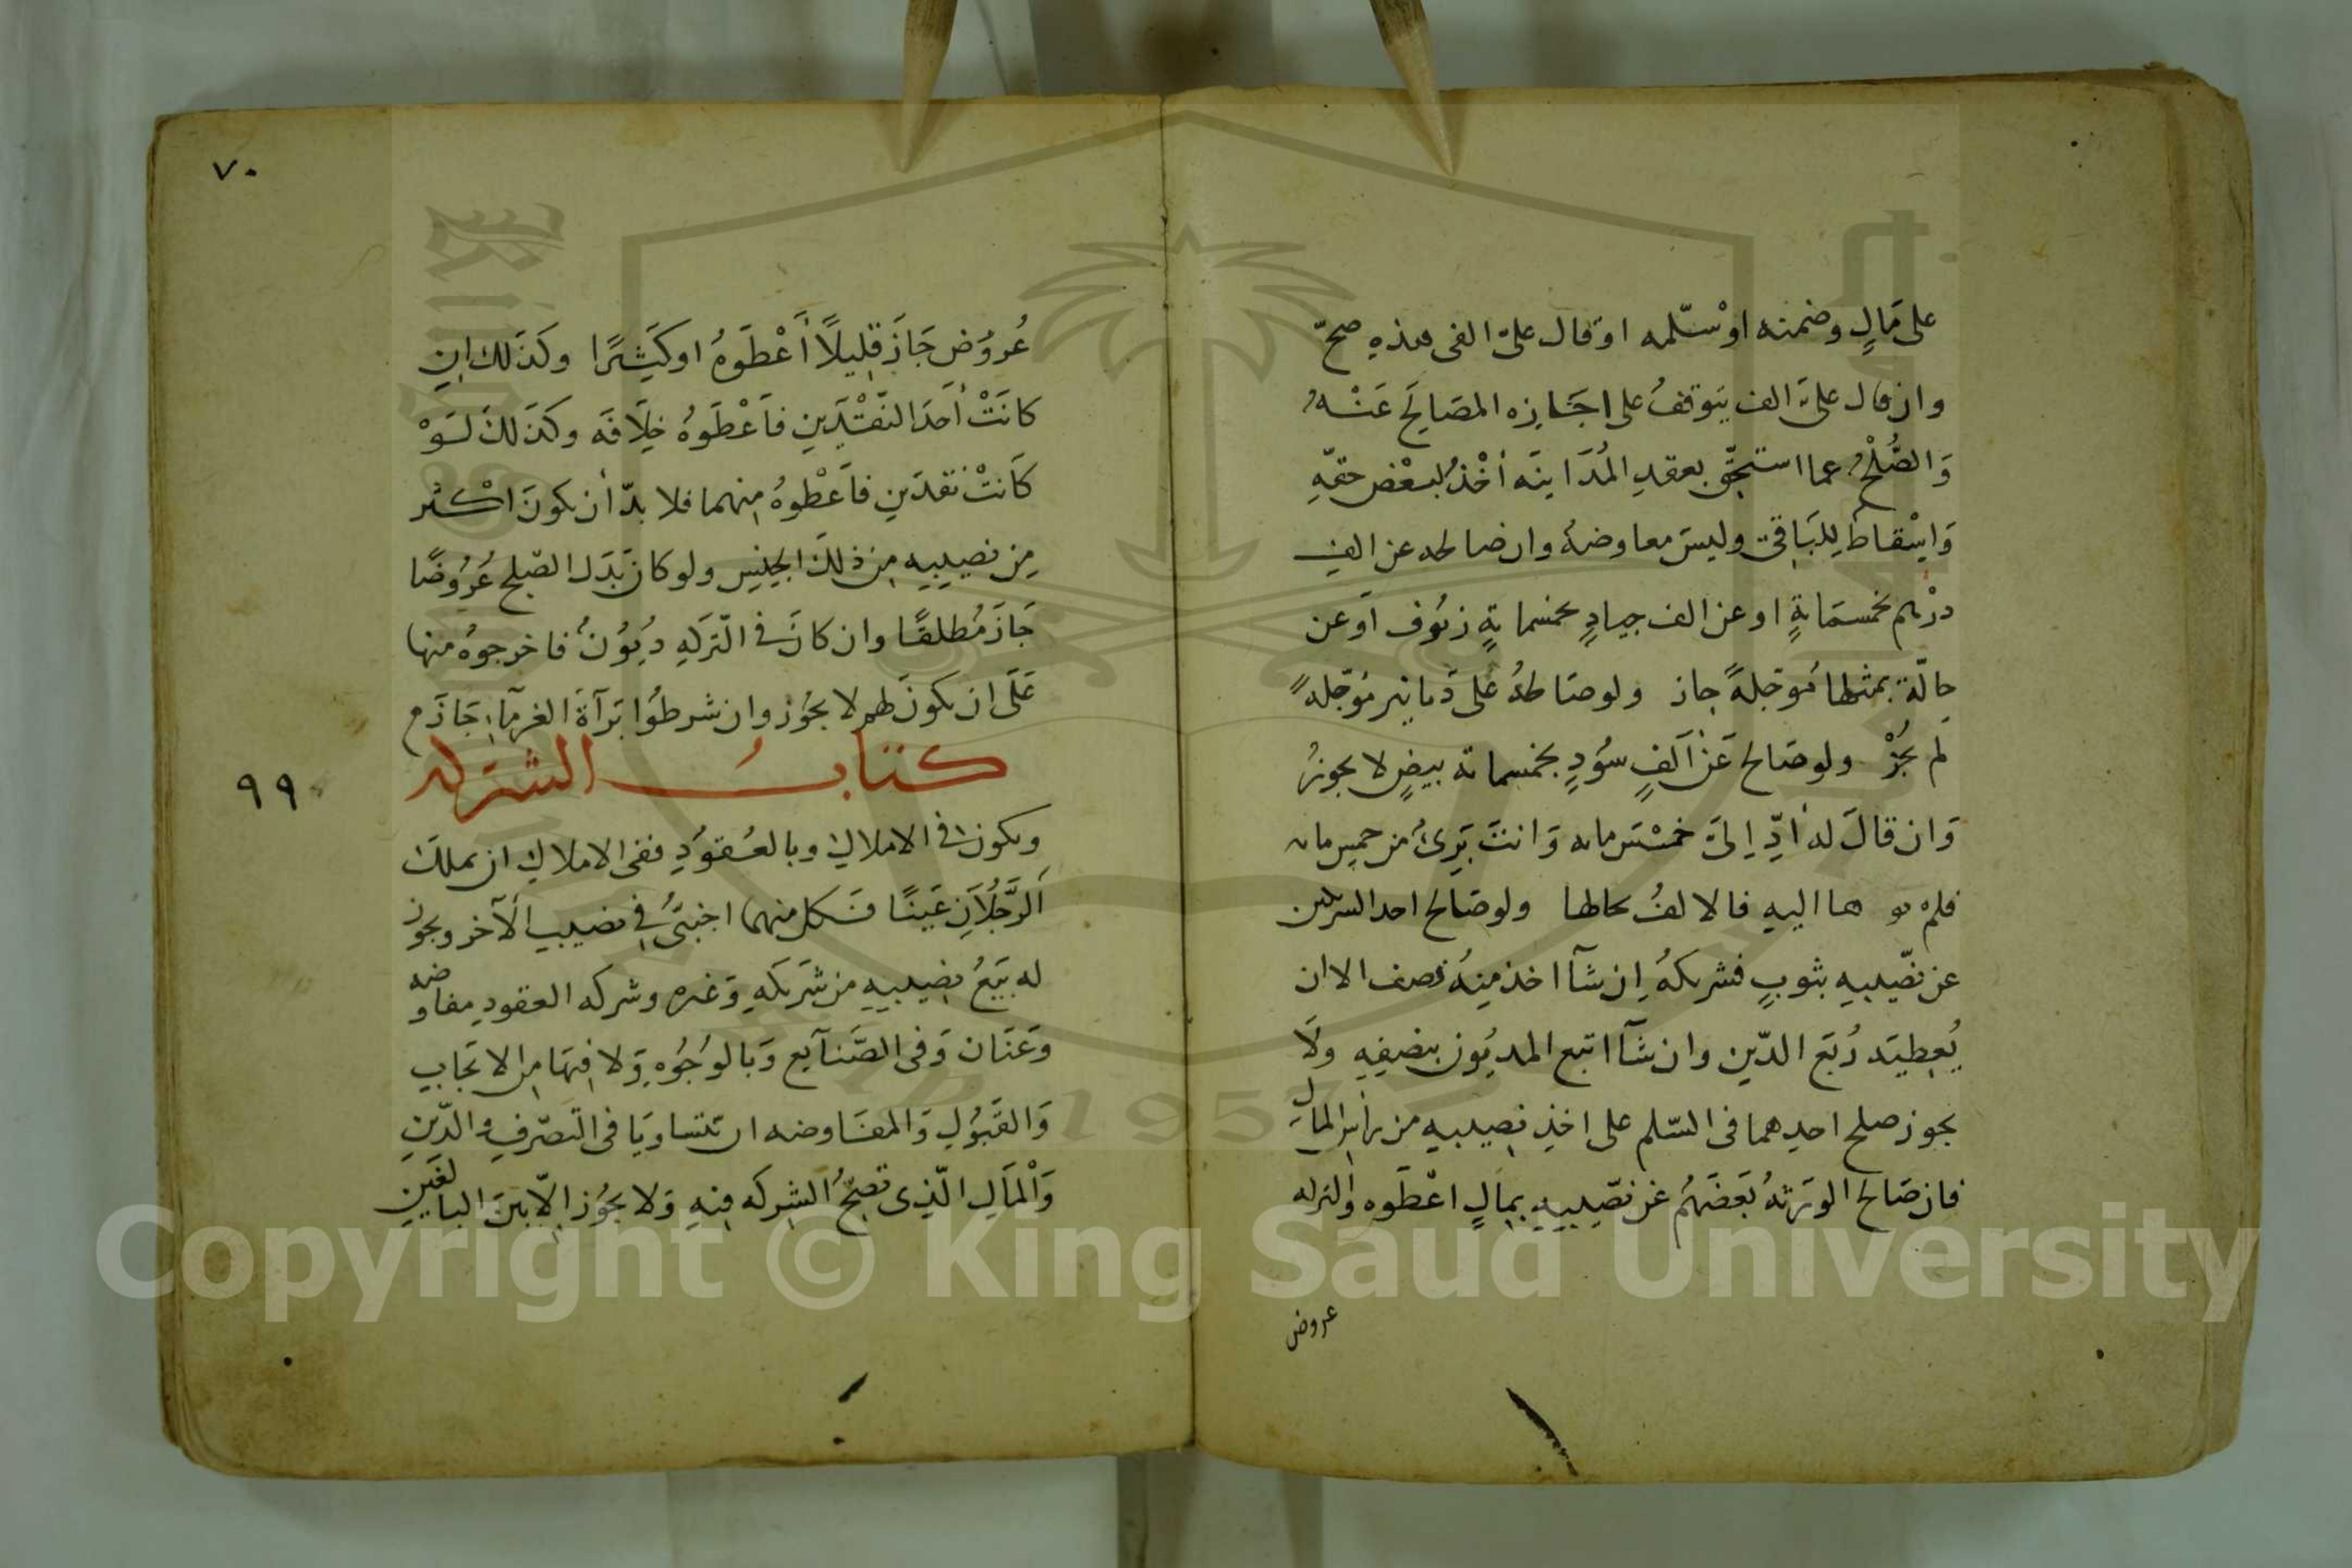 على مَالٍ وضمنه اوْ سّلمه او قال علىّ الفى هذهِ صحّ
وان قال علىَّ الف يتوقفُ على اجَازه المصَالَح عَنْهُ
وَالصُّلْحُ عما استحِقّ بعقدِ المُدَاينَه أخْذُ لبعْض حقهِ
وَاسْقاط لِلبَاقى وليسَ معاوضهُ وان صالحه عن الفِ
درْهم بخمسَمَايةٍ او عن الف جيادٍ بخمسمايةٍ زيُوف اَوعن
حالّة بمثلها مُوَجلةً جاز ولو صَالحهُ عَلى دَنانير مُوَجّلهً
لم يجُزْ ولو صَالح عَنْ اَلفٍ سوُدٍ بخمسماىة بيضٍ لا يجوزُ
وَان قالَ له اَدِّ اِلىّ خمسْمَايه وَانتَ بَرِىُ من خمس مايه
فلم يو ها اليه فالالفُ بحالها ولو صَالح احد الشريكين
عن نصّيبهِ بثوبٍ فشريكهُ اِن شآا اخذ مِنهُ نصف الا ان
يُعِطيَه رُبَع الدّين وان شآا اتبع المديُون بنصفِهِ ولَا
يجوز صلح احدِهما فى السّلم على اخذِ نصِيبهِ من رأسِ المالِ
فان صَالح الورَثهُ بَعَضَهُم عَن نصّيبِهِ بمالٍ اعْطَوه والتركه
عروض
٧٠
عُروُض جَازَ قلِيلاً أَعْطَوهُ اوكَثِيرًا وكذَلك اِن
كانَتْ أَحَدَ النَّقْدَينِ فاَعْطَوهُ خِلَافَه وكذَلكَ لَوْ
كَانتْ نقدَينِ فاَعْطَوهُ مِنهما فلا بدّ أن يكونَ اكْثر
مِن نصيبِهِ مِن ذلكَ الجِنسِ ولو كان بَدَل الصّلح عُرُوضًا
جَازَ مُطلقًا وان كانَ فى التّركَهِ دُيوُنُ فاخرجوهُ منها
عَلَى ان يكونَ لهم لا يجوُز وان شرطوُا برَآةَ الغرمآءِ جَازَ م
كتابُ الشركه
٩٩
ويكون فى الاملاكِ وبالعُقوُدِ ففى الاملاكِ ان يملكَ
اَلرَّجُلاَنِ عَينًا فكل منهما اجنبَىُّ فِى نصيبِ الآخر ويجوز
له بَيَعُ نصِيبِهِ من شرَيكَهِ وَغيره وشركه العقودِ مفاوضه
وَعَنَان وَفى الصَّنآيع وَبالوُجُوُهِ وَلا فِيهَا مِن الايَجابِ
وَالقَبُوُلِ وَالمفَاوضه ان يتساويَا فى التصّرفِ والدّينِ
وَالْمَالِ الّذِى تصِحُّ الشِركه فِيهِ وَلا يجوُز اِلاّ بينَ البالغَينِ
Copyright © King Saud University
1957